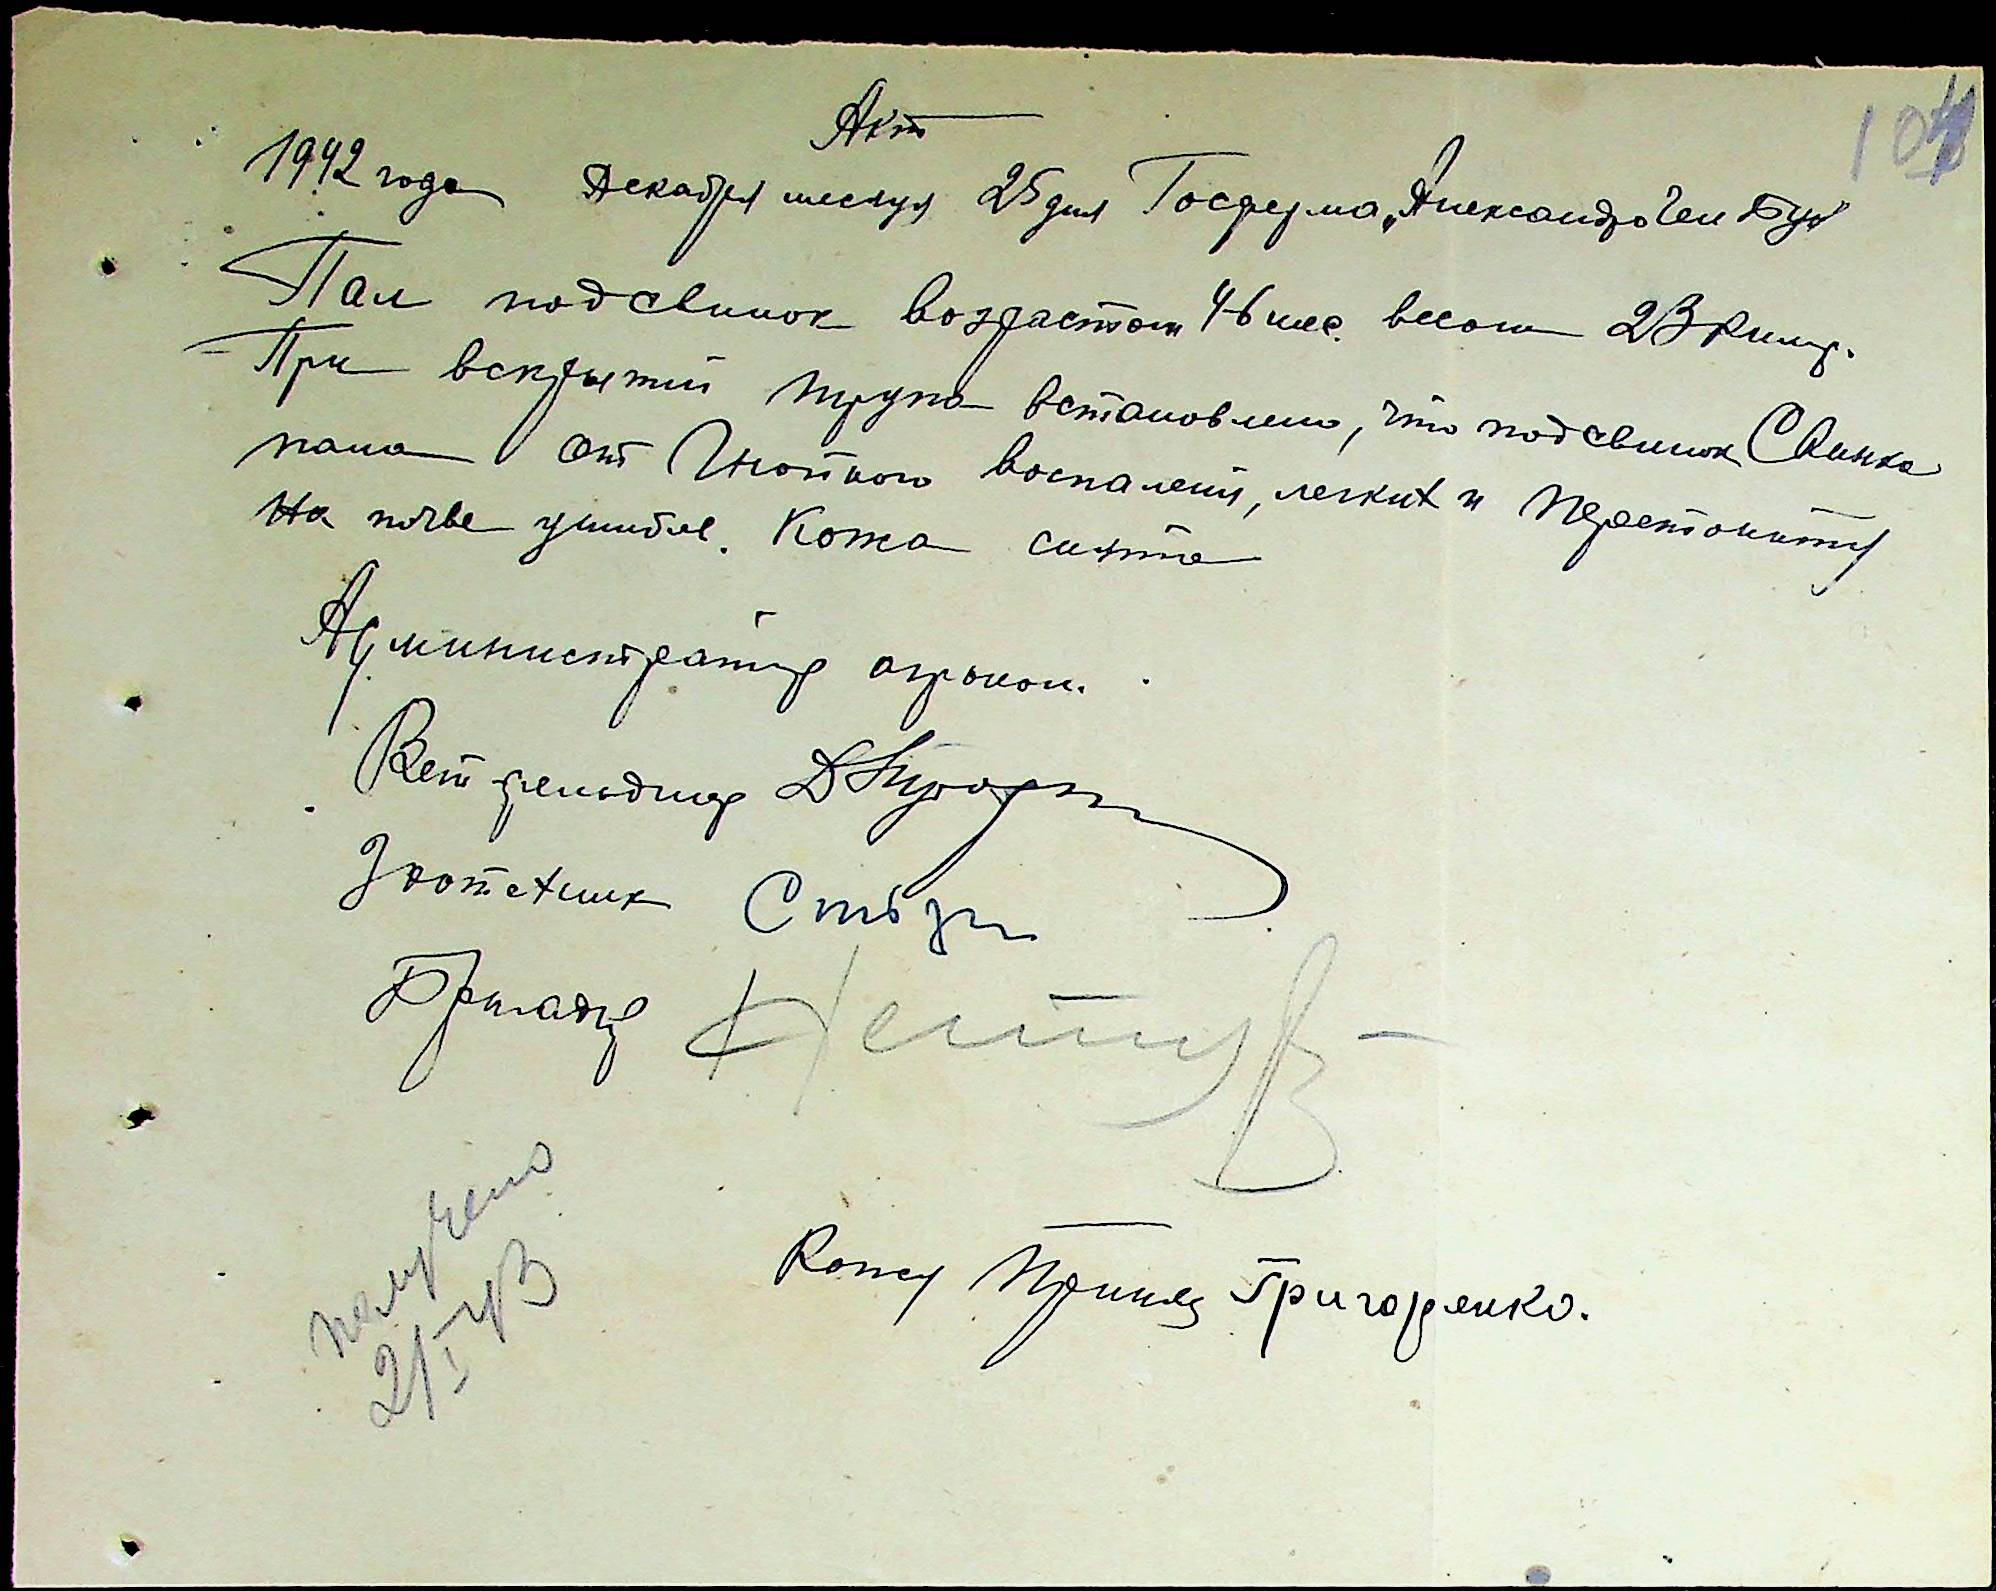 104
Акт
1942 года Декабря месяця 25 дня Госферма „Александро
Пал подсвинок возрастом 4-6 мес. весом 23 килг.
При вскрытии трупа встановлено, что подсвинок Свинка
пала от Гнойного воспаления, легких и перетонита
На почве ушиба. Кожа снята
Администратор агроном.
Вет фельдшер
Зоотехник
Бригадир
Кожу Принял Григоренко.
получено
2/I 43